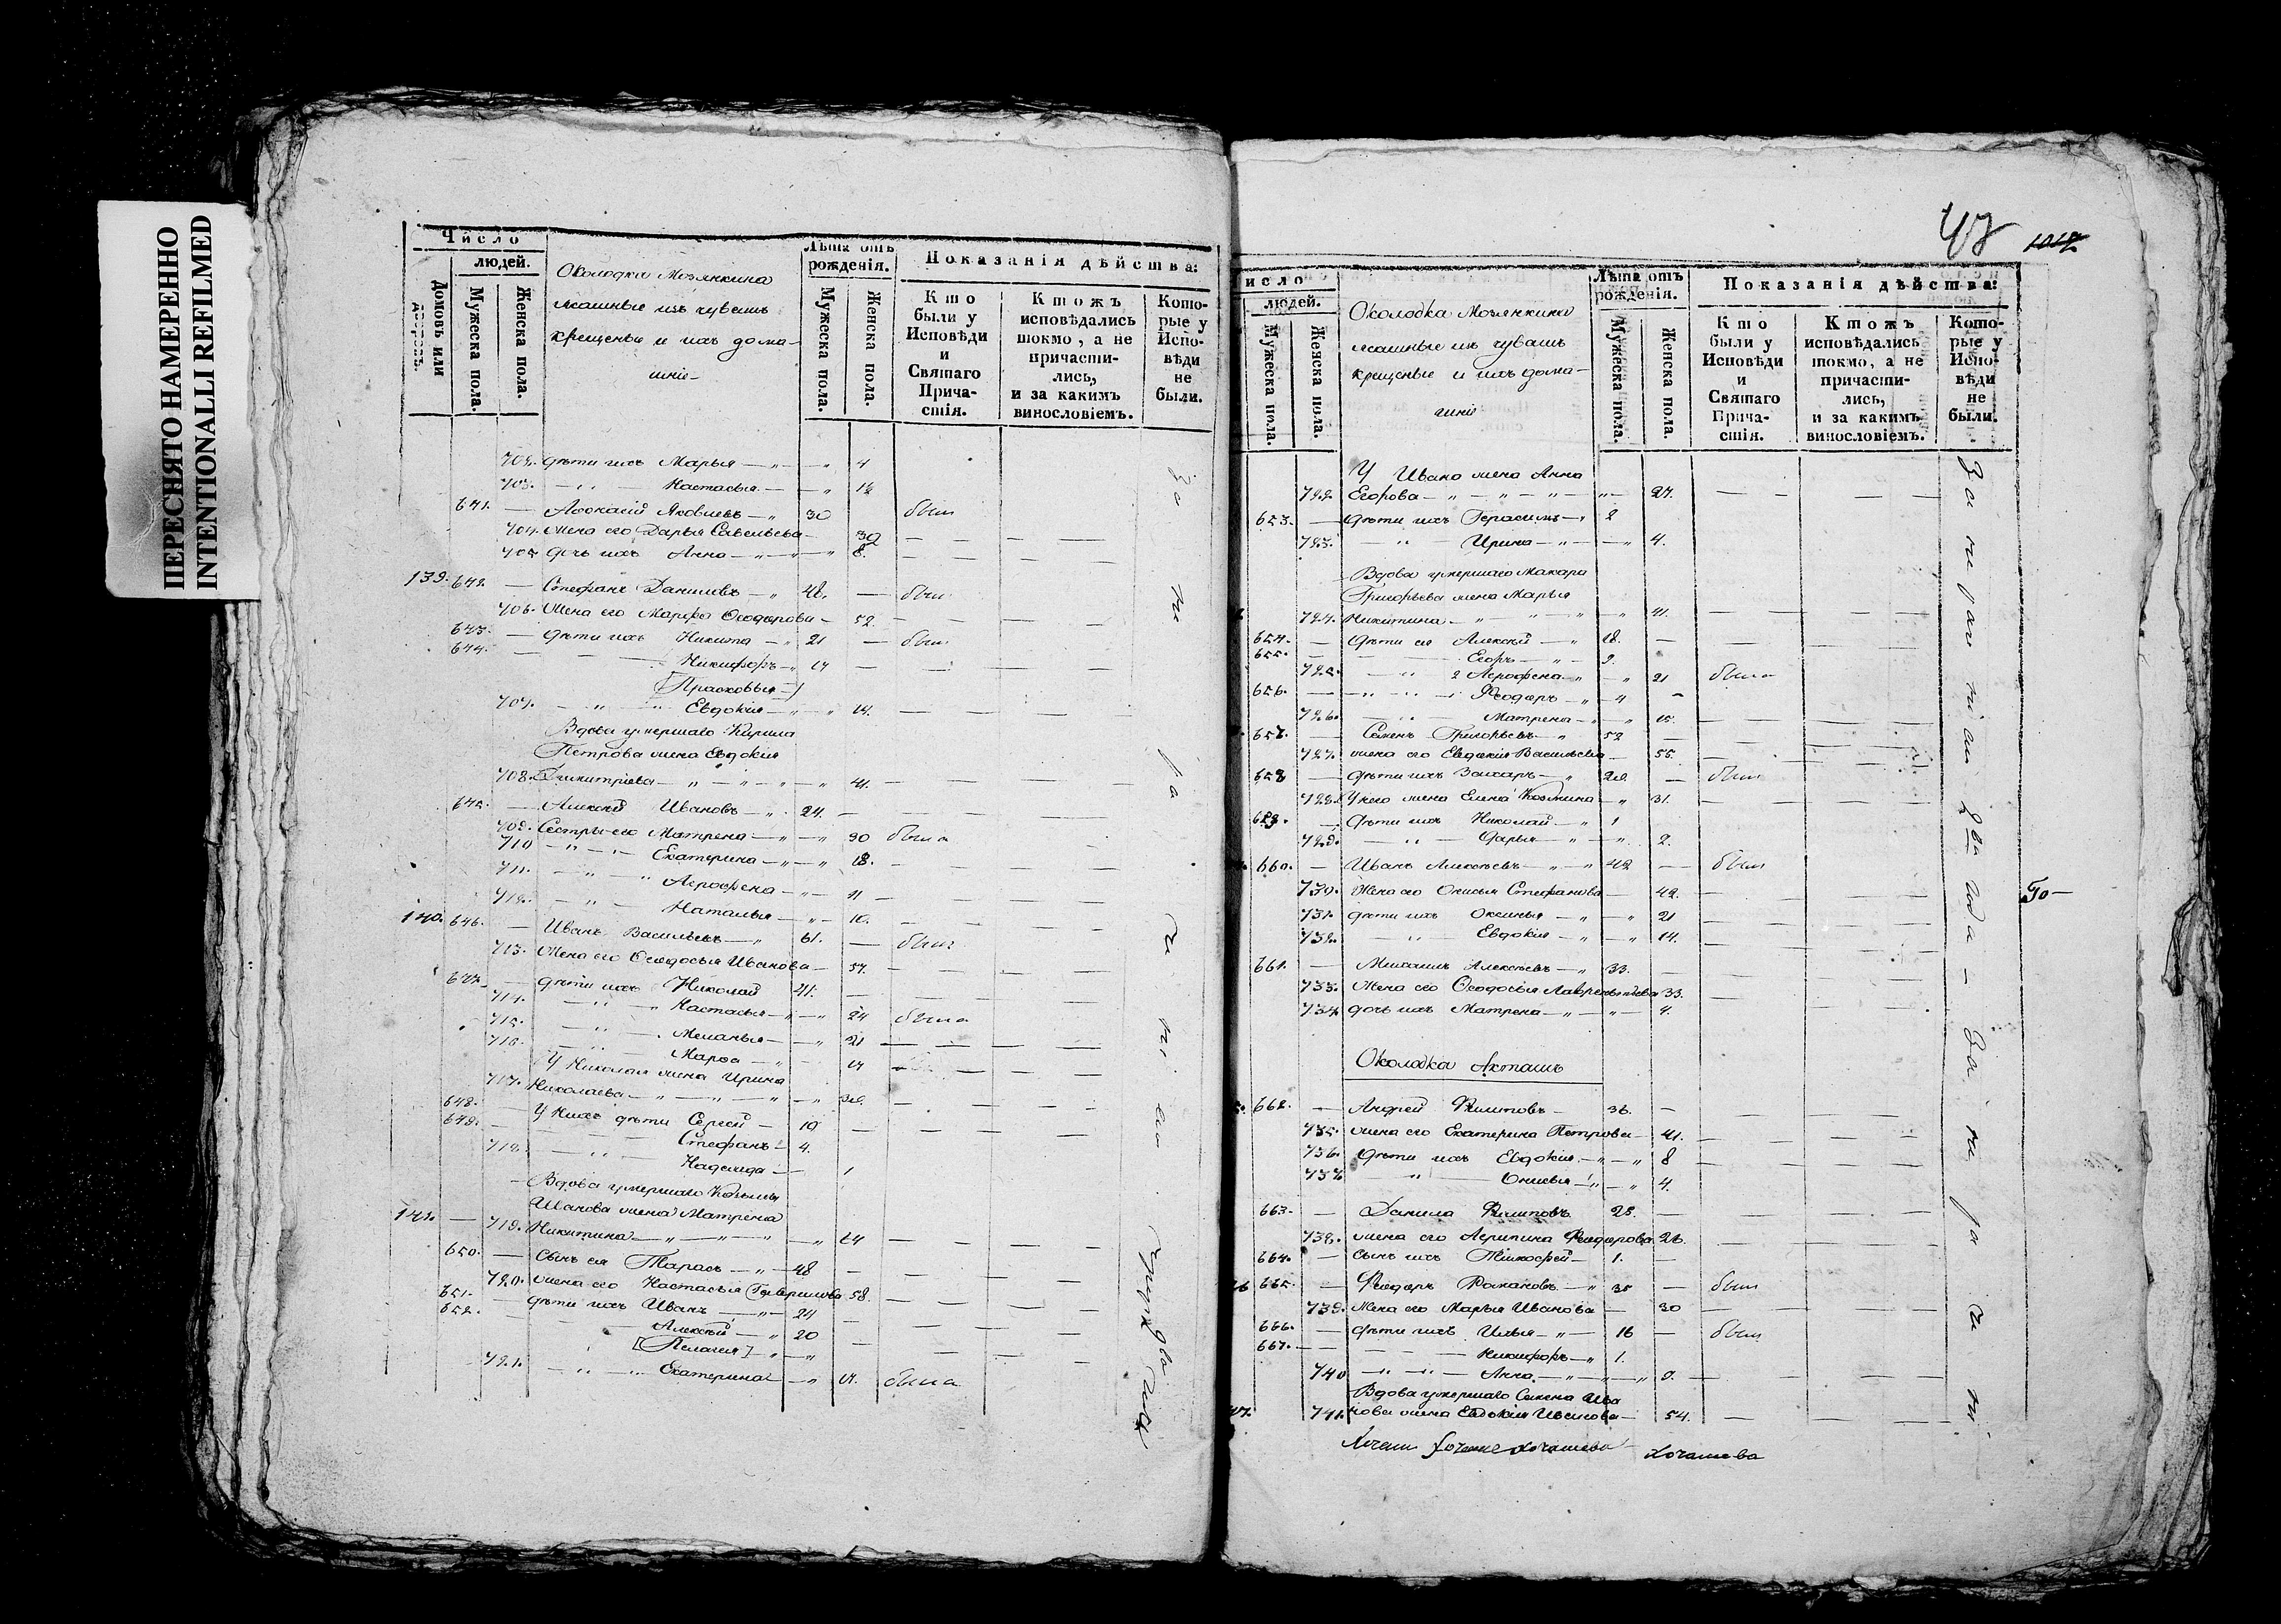 ПЕРЕСНЯТО НАМЕРЕННО
INTENTIONALLI REFILMED
Число
людей.
Домовъ или дворовъ.
Мужеска пола.
Женска пола.
Околодка Мозянкина
ясашные изъ чувашъ
крещеные и ихъ дома-
шніе
Лѣта отъ рожденія.
Мужеска пола.
Женска пола.
Показанія дѣйства:
Кто были у Исповѣди и Святаго Прича-стія.
Ктожъ исповѣдались токмо, а не причасти-лись, и за какимъ винословіемъ.
Кото-рые у Испо-вѣди не были.
702. дѣти ихъ Марья — 4
703. Настасья — 12
641. Афонасій Яковлевъ — 30 былъ
704. Жена его Дарья Савельева — 32
705. дочь ихъ Анна — 8.
139. 642. Стефанъ Даниловъ — 48. былъ
706. Жена его Марфа Ѳеодорова — 52.
643. дѣти ихъ Никита — 21 былъ
644. Никифоръ — 17
[Прасковья]
707. Евдокія — 14.
Вдова умершаго Кирила
Петрова жена Евдокія
708. Димитріева — 41.
645. Алексѣй Ивановъ — 24.
709. Сестры его Матрена — 30 была
710 Екатерина — 18.
711. Агрофена — 11
712. Наталья — 10.
140. 646. Иванъ Васильевъ — 61. былъ
713. Жена его Ѳеодосья Иванова — 57.
647. дѣти ихъ Николай 41.
714. Настасья — 24 была
715. Меланья — 21
716. Марѳа — 17
У Николая жена Ирина
717. Николаева — 38.
648. У нихъ дѣти Сергей — 10
649. Стефанъ — 4.
718. Надежда — 1
Вдова умершаго Козьмы
Иванова жена Матрена
719. Никитина — 64
650. Сынъ ея Тарасъ — 48
720. жена его Настасья Гаврилова 58.
651. дѣти ихъ Иванъ — 24
652. Алексѣй — 20
[Пелагея]
721. Екатерина — 17. была
47
1017
Число
людей.
Мужеска пола.
Женска пола.
Околодка Мозянкина
ясашные изъ чувашъ
крещеные и ихъ дома-
шніе
Лѣта отъ рожденія.
Мужеска пола.
Женска пола.
Показанія дѣйства:
Кто были у Исповѣди и Святаго Прича-стія.
Ктожъ исповѣдались токмо, а не причасти-лись, и за какимъ винословіемъ.
Кото-рые у Испо-вѣди не были.
У Ивана жена Анна
722 Егорова — 27.
653. дѣти ихъ Герасимъ — 2
723. Ирина — 4.
Вдова умершаго Макара
Григорьева жена Марья
724. Никитина — 41.
654. дѣти ея Алексѣй — 18.
655. Егоръ — 9.
725. Агрофена — 21 была
656. Ѳеодоръ — 4
726. Матрена — 15.
657. Семенъ Григорьевъ — 52
727. жена его Евдокія Васильева — 55.
658 дѣти ихъ Захаръ — 28. былъ
728. У него жена Елена Козмина — 31.
659. Дѣти ихъ Николай — 1
729. Дарья — 2.
660. Иванъ Алексѣевъ — 42 былъ
730. Жена его Онисья Стефанова — 42.
731. дѣти ихъ Оксинья — 21
732. Евдокія — 14.
661. Михаилъ Алексѣевъ — 33.
733. Жена его Ѳеодосья Лаврентьева 33.
734 дочь ихъ Матрена — 4.
Го-
Околодка Акташъ
662. Андрей Филиповъ — 36.
735. жена его Екатерина Петрова — 41.
736. дѣти ихъ Евдокія — 8
737 Онисья — 4.
663. Данила Филиповъ 25.
738. жена его Агрипина Ѳеодорова 26.
664. Сынъ ихъ Тимофей — 1.
665. Ѳеодоръ Романовъ — 35 былъ
739. Жена его Марья Иванова — 30
666. дѣти ихъ Илья — 16 былъ
667. Никифоръ — 1.
740 Анна — 9.
Вдова умершаго Семена Ива
741. нова жена Евдокія Иванова — 54.